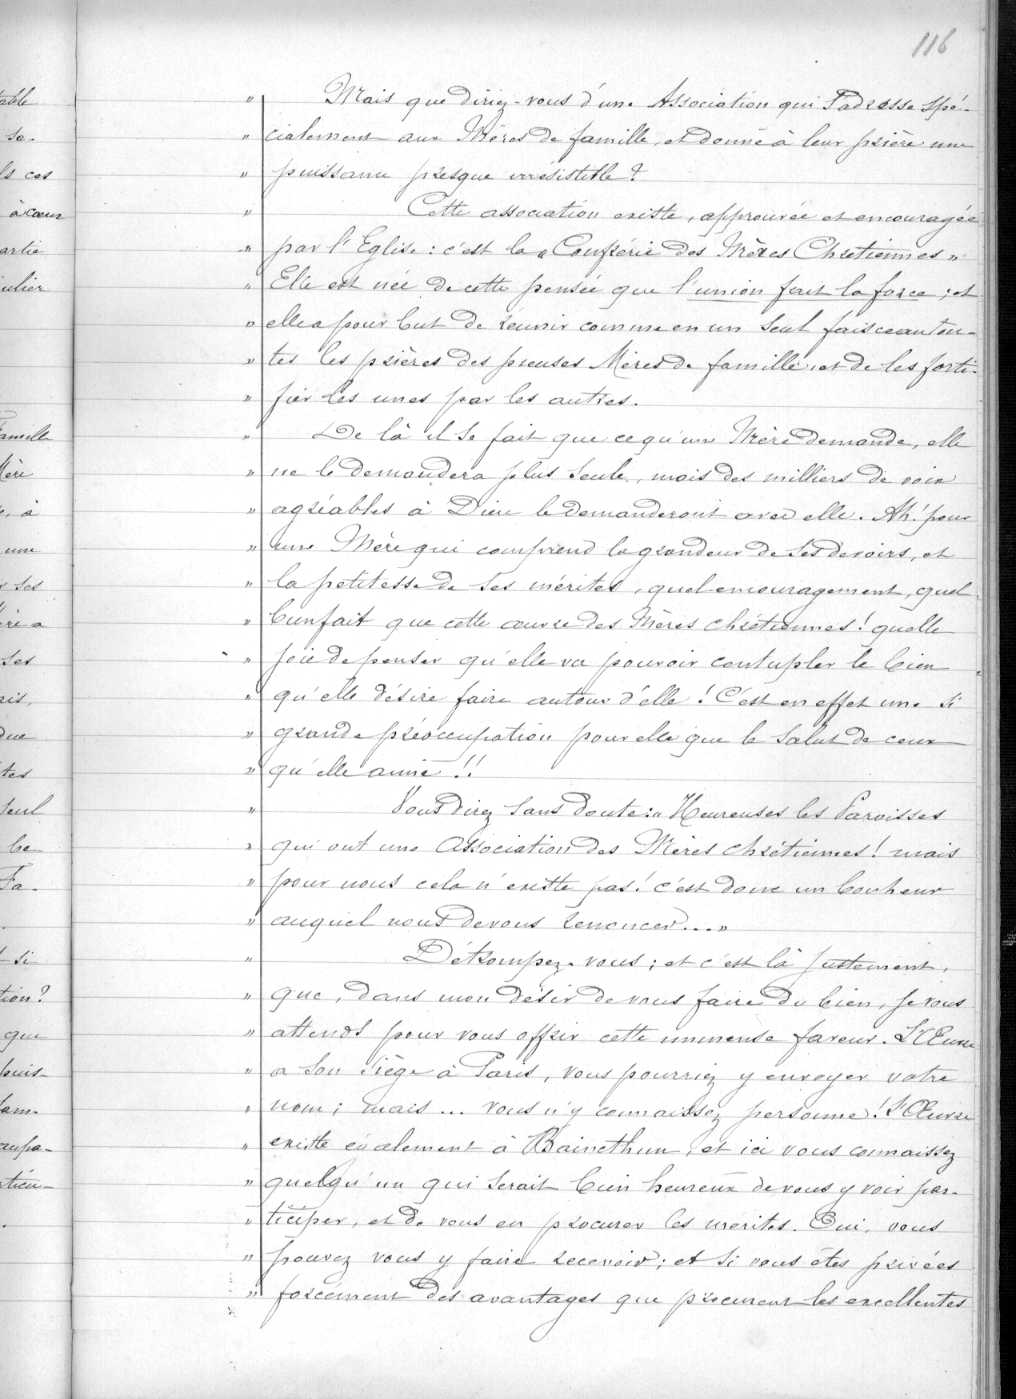 116
" Mais que diriez-vous d'une Association qui s'adresse spé-
" cialement aux Mères de famille, et donne à leur prière une
" puissance presque irrésistible ?
" Cette association existe, approuvée et encouragée
" par l'Eglise : c'est la « Confrérie des Mères Chrétiennes »
" Elle est née de cette pensée que l'union fait la force ; et
" elle a pour but de réunir comme en un seul faisceau tou-
" tes les prières des pieuses Mères de famille, et de les forti-
" fier les unes par les autres.
" De là il se fait que ce qu'une Mère demande, elle
" ne le demandera plus seule, mais des milliers de voix
" agréables à Dieu le demanderont avec elle. Ah ! pour
" une Mère qui comprend la grandeur de ses devoirs, et
" la petitesse de ses mérites, quel encouragement, quel
" bienfait que cette œuvre des Mères chrétiennes ! quelle
" joie de penser qu'elle va pouvoir centupler le bien
" qu'elle désire faire autour d'elle ! C'est en effet une si
" grande préoccupation pour elle que le salut de ceux
" qu'elle aime !!
" Vous direz sans doute : « Heureuses les Paroisses
" qui ont une Association des Mères chrétiennes ! mais
" pour nous cela n'existe pas ! c'est donc un bonheur
" auquel nous devons renoncer... »
" Détrompez-vous ; et c'est là justement,
" que, dans mon désir de vous faire du bien, je vous
" attends pour vous offrir cette immense faveur. L'Œuvre
" a son siège à Paris, vous pourriez y envoyer votre
" nom ; mais ... vous n'y connaissez personne ! L'Œuvre
" existe également à Baincthun, et ici vous connaissez
" quelqu'un qui serait bien heureux de vous y voir par-
" ticiper, et de vous en procurer les mérites. Oui, vous
" pouvez vous y faire recevoir ; et si vous êtes privées
" forcément des avantages que procurent les excellentes